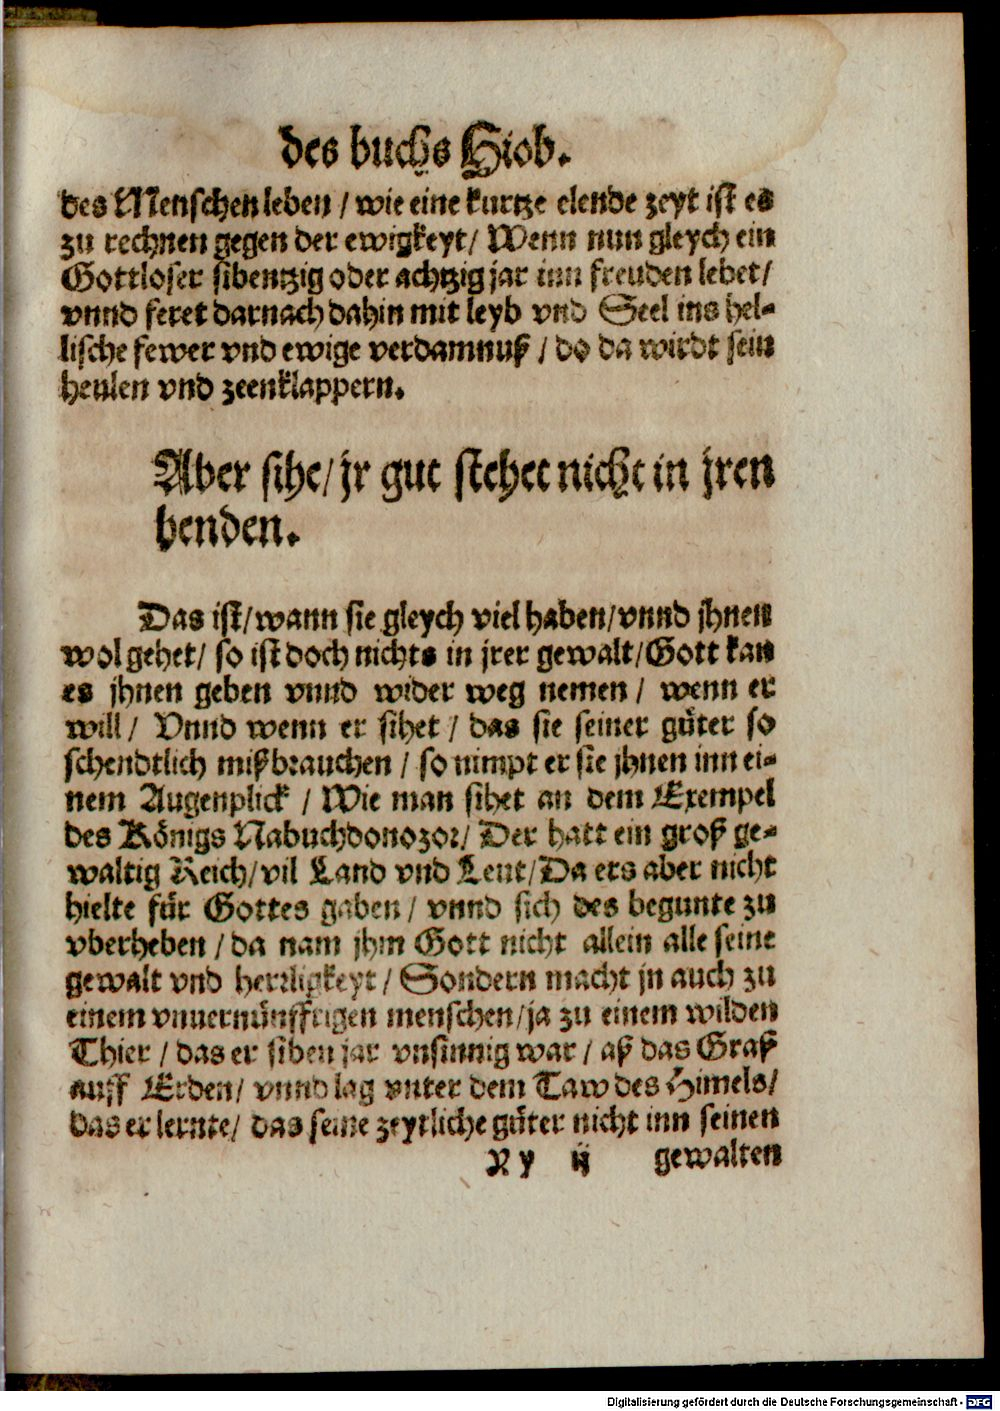 des buchs Hiob.
des Menschen leben / wie eine kurtze elende zeyt ist es
zu rechnen gegen der ewigkeyt / Wenn nun gleych ein
Gottloser sibentzig oder achtzig jar inn freuden lebet /
vnnd feret darnach dahin mit leyb vnd Seel ins hel-
lische fewer vnd ewige verdamnuß / do da wirdt sein
heulen vnd zeenklappern.
Aber sihe / jr gut stehet nicht in jren
henden.
Das ist / wann sie gleych viel haben / vnnd jhnen
wol gehet / so ist doch nichts in jrer gewalt / Gott kan
es jhnen geben vnnd wider weg nemen / wenn er
will / Vnnd wenn er sihet / das sie seiner güter so
schendtlich mißbrauchen / so nimpt er sie jhnen inn ei-
nem Augenplick / Wie man sihet an dem Exempel
des Königs Nabuchdonozor / Der hatt ein groß ge-
waltig Reich / vil Land vnd Leut / Da ers aber nicht
hielte für Gottes gaben / vnnd sich des begunte zu
vberheben / da nam jhm Gott nicht allein alle seine
gewalt vnd herrligkeyt / Sondern macht jn auch zu
einem vnuernünfftigen menschen / ja zu einem wilden
Thier / das er siben jar vnsinnig war / aß das Graß
auff Erden / vnnd lag vnter dem Taw des Himels /
das er lernte / das seine zeytliche güter nicht inn seinen
X y ij gewalten
Digitalisierung gefördert durch die Deutsche Forschungsgemeinschaft - DFG